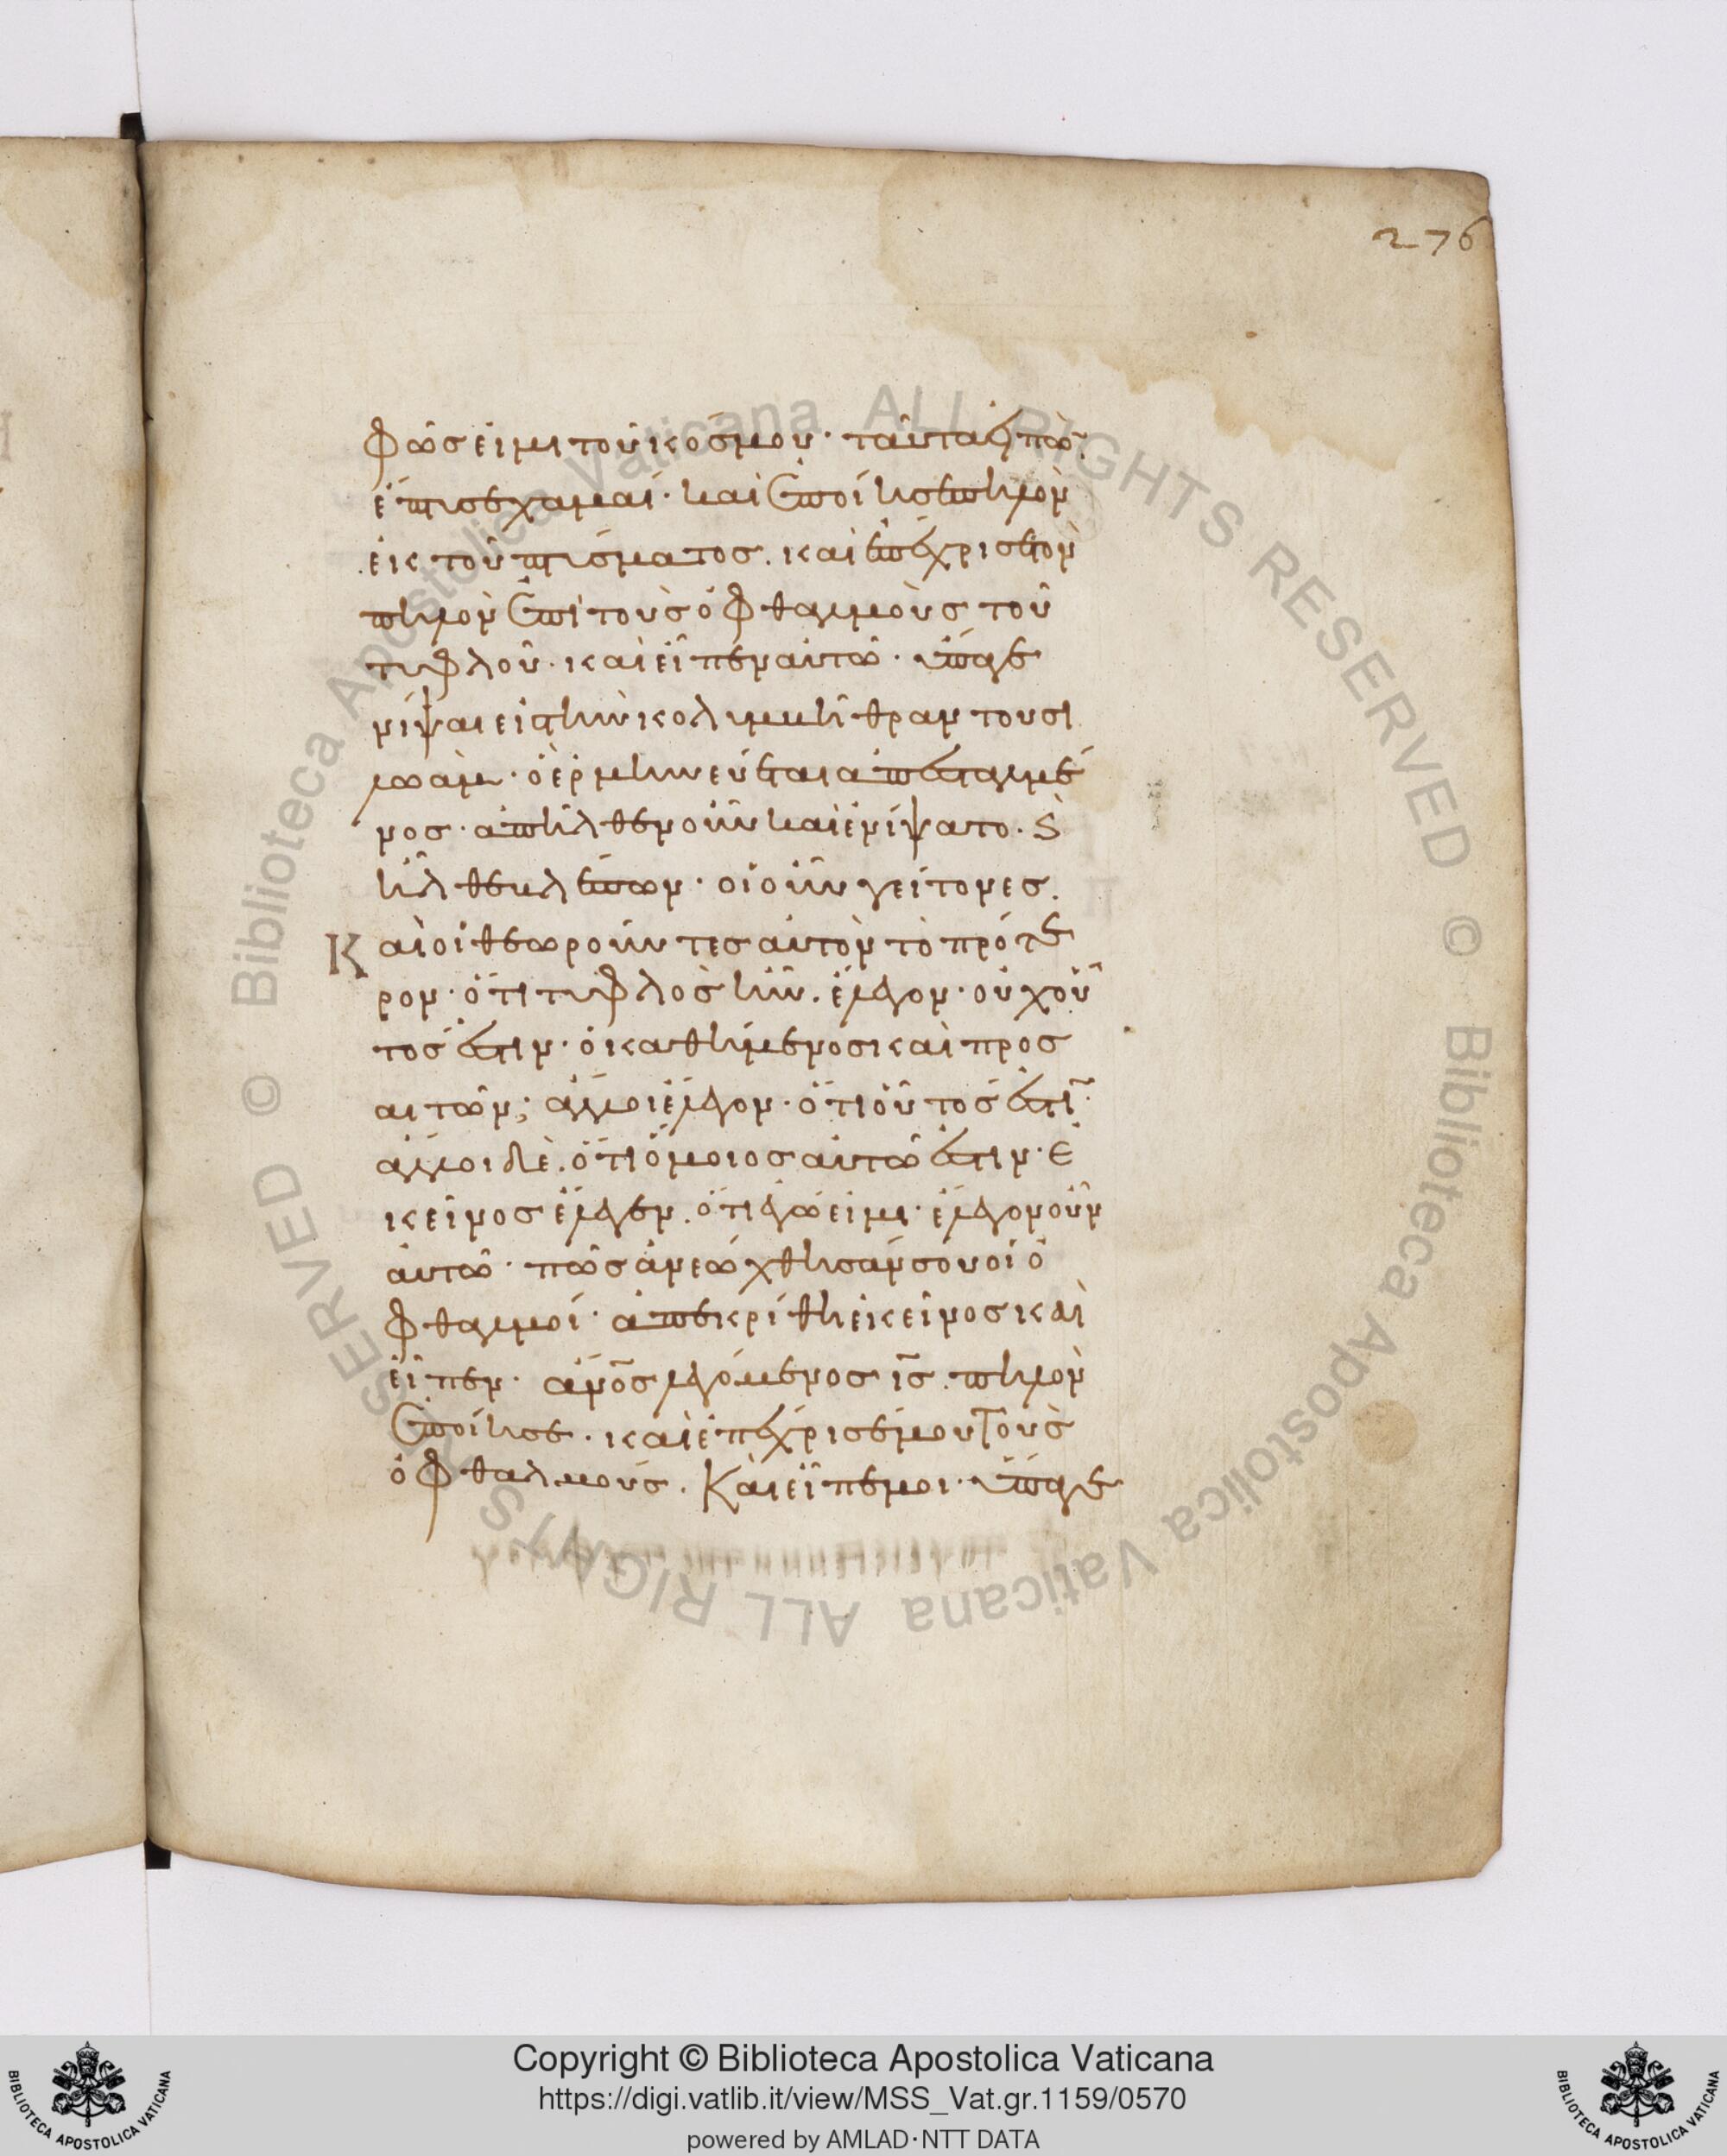 276
φῶς εἰμι τοῦ κόσμου· ταῦτα εἰπὼ̄
ἔπτυσε χαμαί· καὶ ἐποίησε πηλὸν
ἐκ τοῦ πτύσματος. καὶ ἐπέχρισε τὸν
πηλὸν ἐπὶ τοὺς ὀφθαλμοὺς τοῦ
τυφλοῦ· καὶ εἶπεν αὐτῶ· ὕπαγε
νίψαι εἰς τὴν κολυμβήθραν τοῦ σι
λωάμ· ὃ ἑρμηνεύεται ἀπεσταλμέ
νος· ἀπῆλθεν οὖν καὶ ἐνίψατο· ϗ
ἦλθε βλέπων· οἱ οὖν γείτονες.
Καὶ οἱ θεωροῦντες αὐτὸν τὸ πρότε
ρον· ὅτι τυφλὸς ἦν. ἔλεγον· οὐχ οὗ
τός ἐστιν· ὁ καθήμενος καὶ προσ
αιτῶν; ἄλλοι ἔλεγον· ὅτι οὗτός ἐστῑ·
ἄλλοι δὲ. ὅτι ὅμοιος αὐτῶ ἐστιν· ἐ
κεῖνος ἔλεγεν. ὅτι ἐγώ εἰμι· ἔλεγον οὖν
αὐτῶ· πῶς ἀνεώχθησάν σου οἱ ὀ
φθαλμοί· ἀπεκρίθη ἐκεῖνος καὶ
εἶπεν· ἄν̅ο̅ς̅ λεγόμενος ι̅ς̅. πηλὸν
ἐποίησε. καὶ ἐπέχρισέ μου τοὺς
ὀφθαλμούς. Καὶ εἶπέ μοι· ὕπαγε
Copyright © Biblioteca Apostolica Vaticana
https://digi.vatlib.it/view/MSS_Vat.gr.1159/0570
powered by AMLAD·NTT DATA
BIBLIOTECA APOSTOLICA VATICANA
BIBLIOTECA APOSTOLICA VATICANA
© Biblioteca Apostolica Vaticana ALL RIGHTS RESERVED © Biblioteca Apostolica Vaticana ALL RIGHTS RESERVED